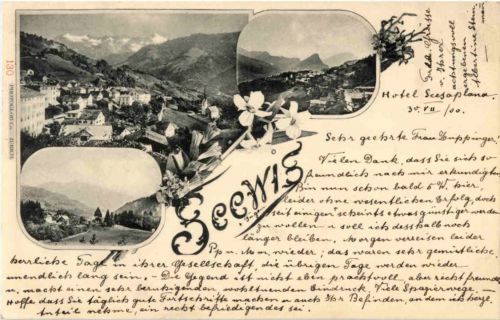 Seewis
Hotel Scesaplana
30. VII /00.
Sehr geehrte Frau Huppinger!
Vielen Dank, dass Sie sich so
freundlich nach mir erkundigten
Bin nun schon bald 5 W. hier,
leider ohne wesentlichen Erfolg, doch
seit einigen scheints etwas günstiger werden
zu wollen – u soll ich desshalb noch
länger bleiben, Morgen verreisen leider
wieder, das waren sehr gemütliche,
herrliche Tage in ihrer Gesellschaft, die übrigen Tage werden wieder
unendlich lang sein, – Die Gegend ist nicht eben prachtvoll, aber recht freund
macht einen sehr beruhigenden, wohltuenden Eindruck. Viele Spazierwege. –
Hoffe dass Sie täglich gute Fortschritte machen u auch Ihr Befinden, an dem ich herzl.
Anteil nehme, ein recht befriedigendes sei.
Feldl. Grüsse
v. Ihrer
achtungsvoll
ergebenen
Albertine
130